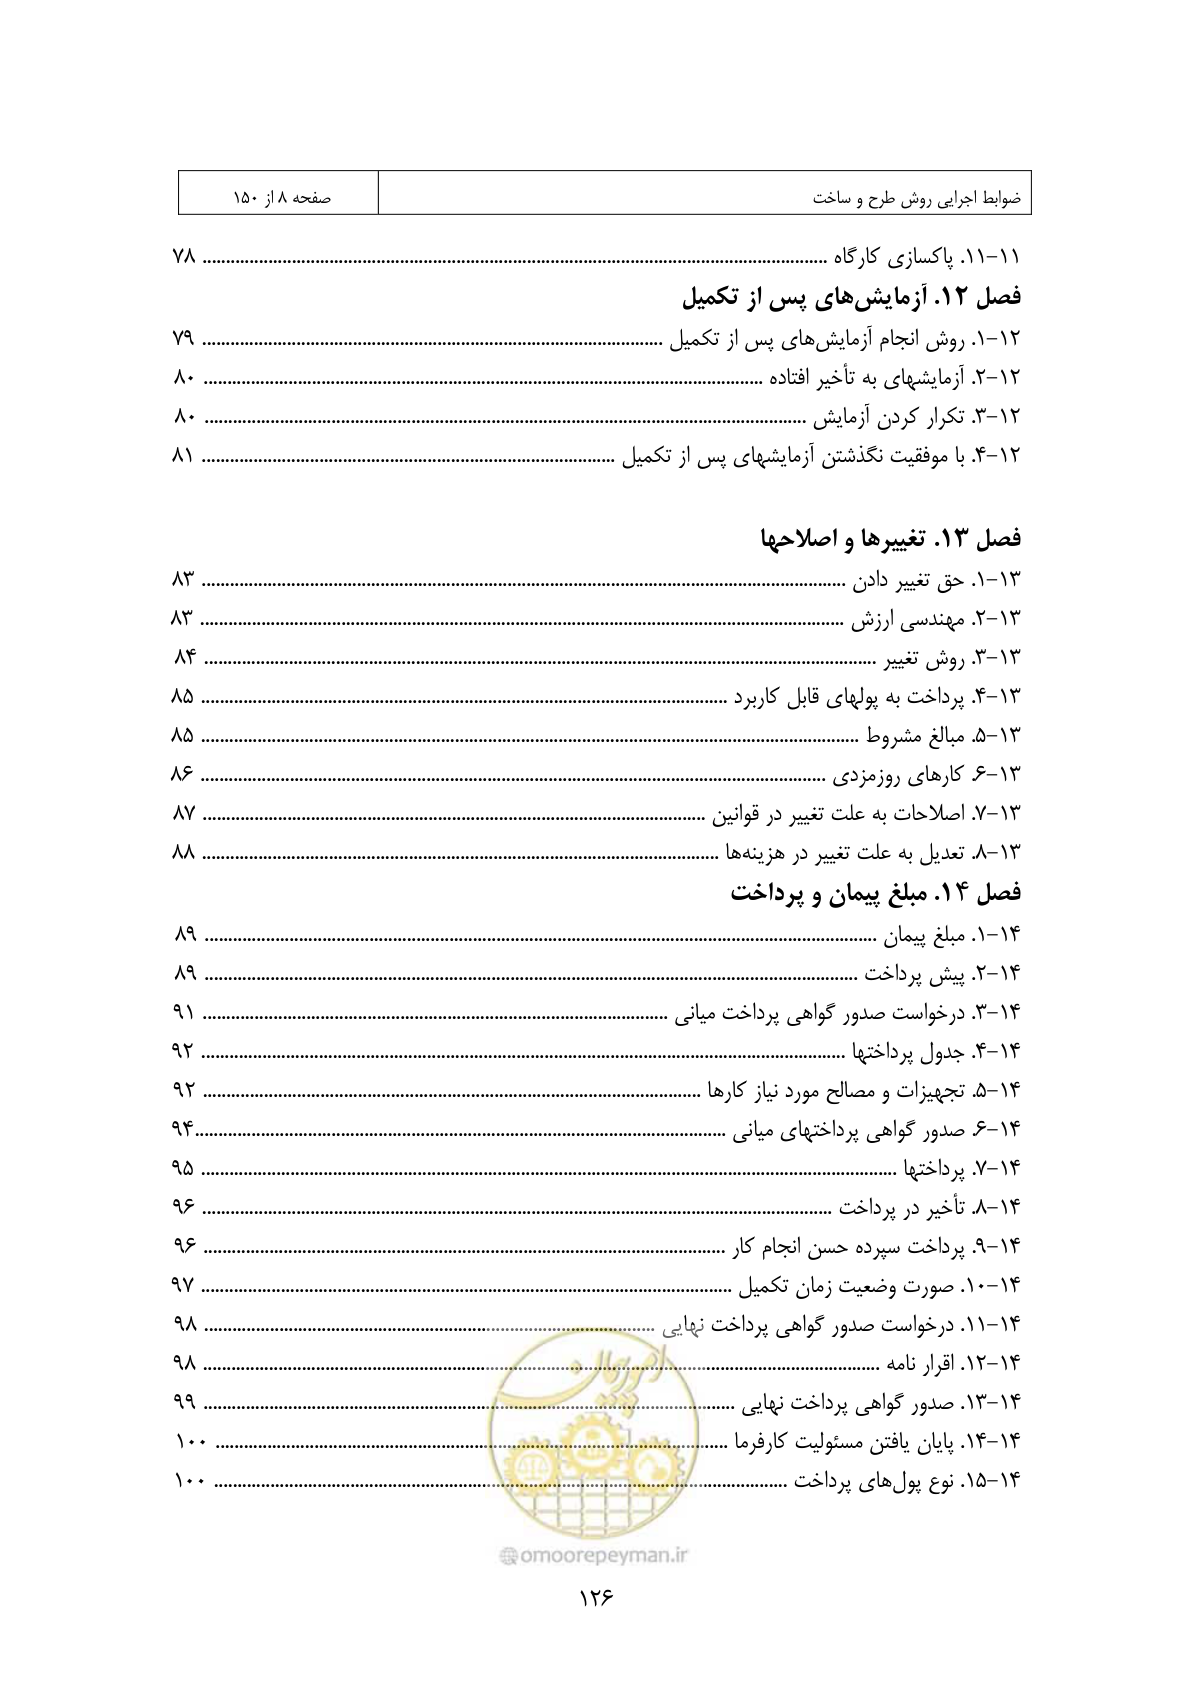 ضوابط اجرایی روش طرح و ساخت صفحه ۸ از ۱۵۰
۱۱-۱۱. پاکسازی کارگاه ........ ۷۸
فصل ۱۲. آزمایش‌های پس از تکمیل
۱۲-۱. روش انجام آزمایش‌های پس از تکمیل ........ ۷۹
۱۲-۲. آزمایشهای به تأخیر افتاده ........ ۸۰
۱۲-۳. تکرار کردن آزمایش ........ ۸۰
۱۲-۴. با موفقیت نگذشتن آزمایشهای پس از تکمیل ........ ۸۱
فصل ۱۳. تغییرها و اصلاحها
۱۳-۱. حق تغییر دادن ........ ۸۳
۱۳-۲. مهندسی ارزش ........ ۸۳
۱۳-۳. روش تغییر ........ ۸۴
۱۳-۴. پرداخت به پولهای قابل کاربرد ........ ۸۵
۱۳-۵. مبالغ مشروط ........ ۸۵
۱۳-۶. کارهای روزمزدی ........ ۸۶
۱۳-۷. اصلاحات به علت تغییر در قوانین ........ ۸۷
۱۳-۸. تعدیل به علت تغییر در هزینه‌ها ........ ۸۸
فصل ۱۴. مبلغ پیمان و پرداخت
۱۴-۱. مبلغ پیمان ........ ۸۹
۱۴-۲. پیش پرداخت ........ ۸۹
۱۴-۳. درخواست صدور گواهی پرداخت میانی ........ ۹۱
۱۴-۴. جدول پرداختها ........ ۹۲
۱۴-۵. تجهیزات و مصالح مورد نیاز کارها ........ ۹۲
۱۴-۶. صدور گواهی پرداختهای میانی ........ ۹۴
۱۴-۷. پرداختها ........ ۹۵
۱۴-۸. تأخیر در پرداخت ........ ۹۶
۱۴-۹. پرداخت سپرده حسن انجام کار ........ ۹۶
۱۴-۱۰. صورت وضعیت زمان تکمیل ........ ۹۷
۱۴-۱۱. درخواست صدور گواهی پرداخت نهایی ........ ۹۸
۱۴-۱۲. اقرار نامه ........ ۹۸
۱۴-۱۳. صدور گواهی پرداخت نهایی ........ ۹۹
۱۴-۱۴. پایان یافتن مسئولیت کارفرما ........ ۱۰۰
۱۴-۱۵. نوع پول‌های پرداخت ........ ۱۰۰
امور پیمان
@omoorepeyman.ir
۱۲۶